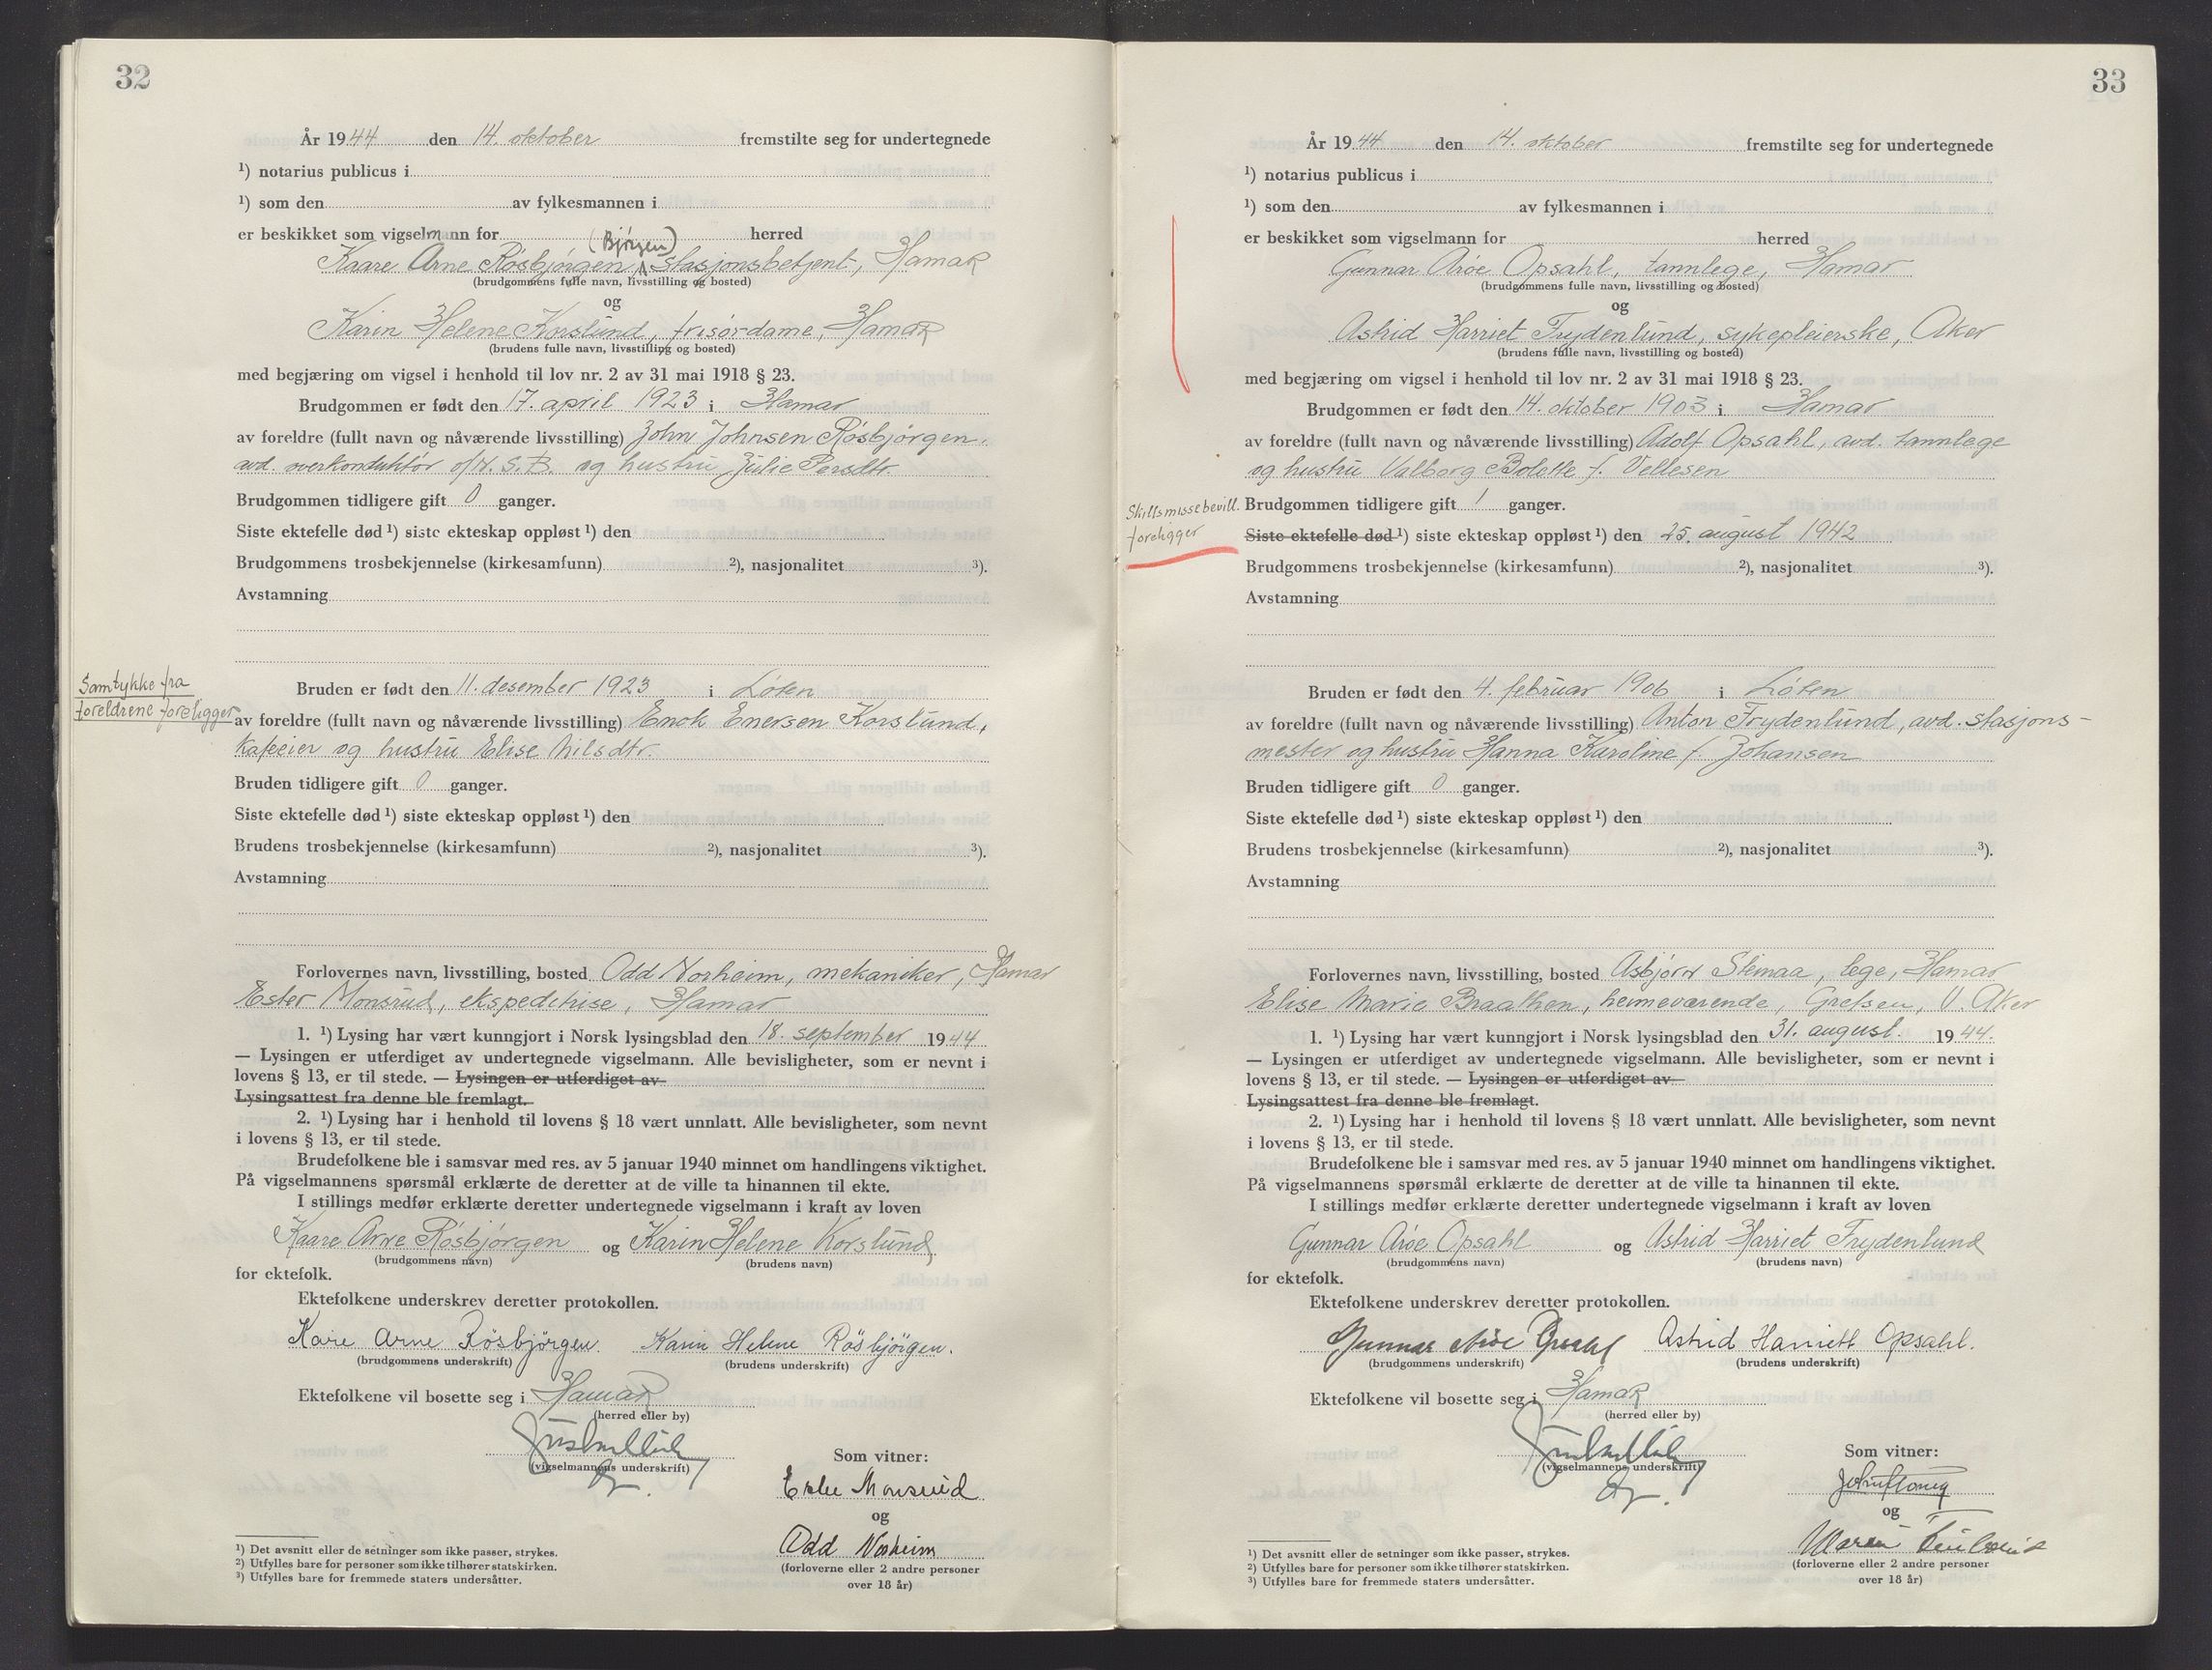 32
År 1944 den 14. oktober fremstilte seg for undertegnede
¹) notarius publicus i
¹) som den av fylkesmannen i
er beskikket som vigselmann for herred
(Bjørgen)
Kaare Arne Røsbjørgen, stasjonsbetjent, Hamar
(brudgommens fulle navn, livsstilling og bosted)
og
Karin Helene Korslund, frisørdame, Hamar
(brudens fulle navn, livsstilling og bosted)
med begjæring om vigsel i henhold til lov nr. 2 av 31 mai 1918 § 23.
Brudgommen er født den 17. april 1923 i Hamar
av foreldre (fullt navn og nåværende livsstilling) John Johnsen Røsbjørgen,
avd. overkonduktør v/N.S.B. og hustru Julie Persdtr.
Brudgommen tidligere gift 0 ganger.
Siste ektefelle død ¹) siste ekteskap oppløst ¹) den
Brudgommens trosbekjennelse (kirkesamfunn) ²), nasjonalitet ³).
Avstamning
Samtykke fra
foreldrene foreligger
Bruden er født den 11. desember 1923 i Løten
av foreldre (fullt navn og nåværende livsstilling) Enok Enersen Korslund,
kafeeier og hustru Elise Nilsdtr.
Bruden tidligere gift 0 ganger.
Siste ektefelle død ¹) siste ekteskap oppløst ¹) den
Brudens trosbekjennelse (kirkesamfunn) ²), nasjonalitet ³).
Avstamning
Forlovernes navn, livsstilling, bosted Odd Norheim, mekaniker, Hamar
Ester Monsrud, ekspeditrise, Hamar
1. ¹) Lysing har vært kunngjort i Norsk lysingsblad den 18. september 1944
— Lysingen er utferdiget av undertegnede vigselmann. Alle bevisligheter, som er nevnt i
lovens § 13, er til stede. — Lysingen er utferdiget av
Lysingsattest fra denne ble fremlagt.
2. ¹) Lysing har i henhold til lovens § 18 vært unnlatt. Alle bevisligheter, som nevnt
i lovens § 13, er til stede.
Brudefolkene ble i samsvar med res. av 5 januar 1940 minnet om handlingens viktighet.
På vigselmannens spørsmål erklærte de deretter at de ville ta hinannen til ekte.
I stillings medfør erklærte deretter undertegnede vigselmann i kraft av loven
Kaare Arne Røsbjørgen og Karin Helene Korslund
(brudgommens navn) (brudens navn)
for ektefolk.
Ektefolkene underskrev deretter protokollen.
Kåre Arne Røsbjørgen. Karin Helene Røsbjørgen.
(brudgommens underskrift) (brudens underskrift)
Ektefolkene vil bosette seg i Hamar
(herred eller by)
(vigselmannens underskrift)
Som vitner:
Ester Monsrud
og
Odd Norheim
(forloverne eller 2 andre personer
over 18 år)
¹) Det avsnitt eller de setninger som ikke passer, strykes.
²) Utfylles bare for personer som ikke tilhører statskirken.
³) Utfylles bare for fremmede staters undersåtter.
33
År 1944 den 14. oktober fremstilte seg for undertegnede
¹) notarius publicus i
¹) som den av fylkesmannen i
er beskikket som vigselmann for herred
Gunnar Arøe Opsahl, tannlege, Hamar
(brudgommens fulle navn, livsstilling og bosted)
og
Astrid Harriet Frydenlund, sykepleierske, Aker
(brudens fulle navn, livsstilling og bosted)
med begjæring om vigsel i henhold til lov nr. 2 av 31 mai 1918 § 23.
Brudgommen er født den 14. oktober 1903 i Hamar
av foreldre (fullt navn og nåværende livsstilling) Adolf Opsahl, avd. tannlege
og hustru Valborg Bolette f. Vellesen
Skillsmissebevill.
foreligger
Brudgommen tidligere gift 1 ganger.
Siste ektefelle død ¹) siste ekteskap oppløst ¹) den 25. august 1942
Brudgommens trosbekjennelse (kirkesamfunn) ²), nasjonalitet ³).
Avstamning
Bruden er født den 4. februar 1906 i Løten
av foreldre (fullt navn og nåværende livsstilling) Anton Frydenlund, avd. stasjons-
mester og hustru Hanna Karoline f. Johansen
Bruden tidligere gift 0 ganger.
Siste ektefelle død ¹) siste ekteskap oppløst ¹) den
Brudens trosbekjennelse (kirkesamfunn) ²), nasjonalitet ³).
Avstamning
Forlovernes navn, livsstilling, bosted Asbjørn Steinaa, lege, Hamar
Elise Marie Braathen, heimeværende, Grefsen, V. Aker
1. ¹) Lysing har vært kunngjort i Norsk lysingsblad den 31. august. 1944.
— Lysingen er utferdiget av undertegnede vigselmann. Alle bevisligheter, som er nevnt i
lovens § 13, er til stede. — Lysingen er utferdiget av
Lysingsattest fra denne ble fremlagt.
2. ¹) Lysing har i henhold til lovens § 18 vært unnlatt. Alle bevisligheter, som nevnt
i lovens § 13, er til stede.
Brudefolkene ble i samsvar med res. av 5 januar 1940 minnet om handlingens viktighet.
På vigselmannens spørsmål erklærte de deretter at de ville ta hinannen til ekte.
I stillings medfør erklærte deretter undertegnede vigselmann i kraft av loven
Gunnar Arøe Opsahl og Astrid Harriet Frydenlund
(brudgommens navn) (brudens navn)
for ektefolk.
Ektefolkene underskrev deretter protokollen.
Gunnar Arøe Opsahl Astrid Harriett Opsahl.
(brudgommens underskrift) (brudens underskrift)
Ektefolkene vil bosette seg i Hamar
(herred eller by)
(vigselmannens underskrift)
Som vitner:
og
(forloverne eller 2 andre personer
over 18 år)
¹) Det avsnitt eller de setninger som ikke passer, strykes.
²) Utfylles bare for personer som ikke tilhører statskirken.
³) Utfylles bare for fremmede staters undersåtter.